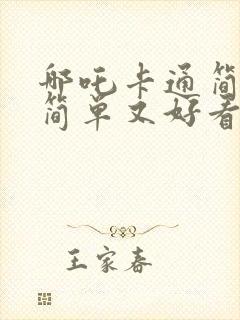 哪吒卡通简
简单又好看
王家春